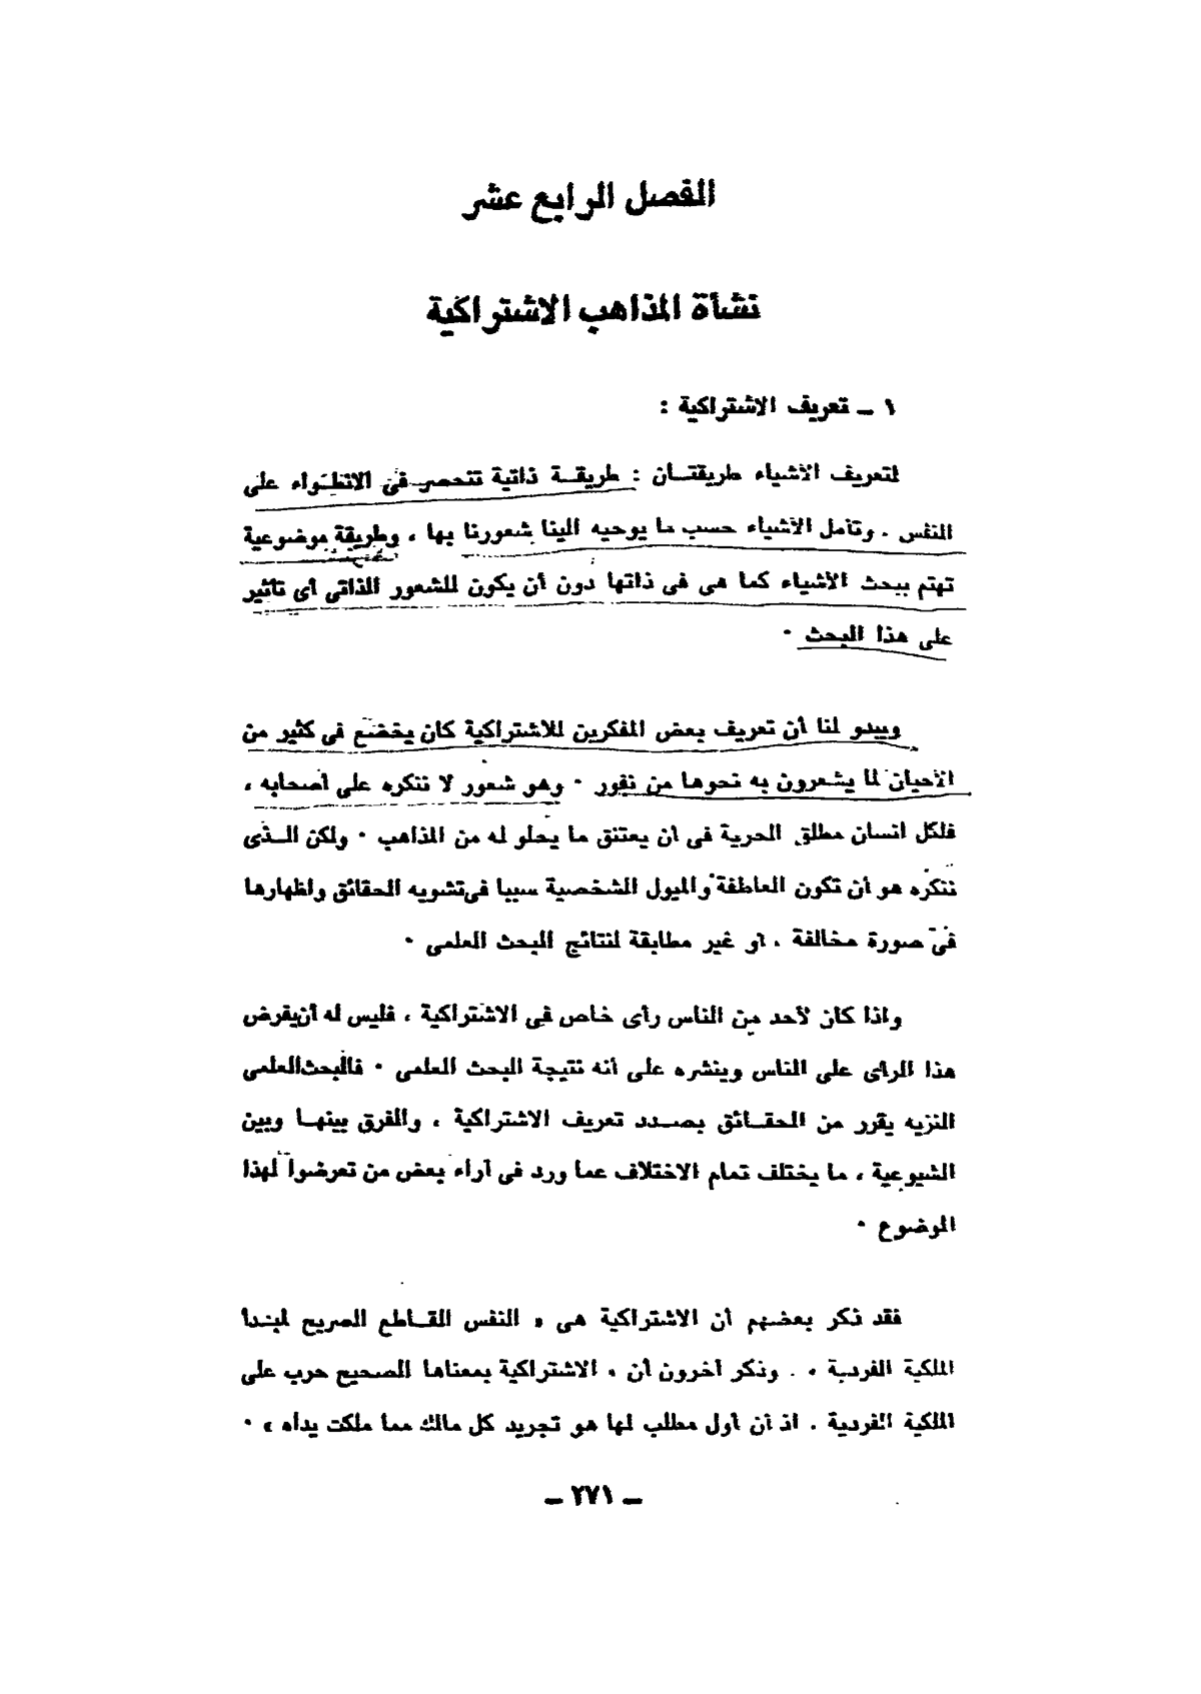 الفصل الرابع عشر
نشأة المذاهب الاشتراكية
١ ـ تعريف الاشتراكية :
لتعريف الأشياء طريقتـان : طريقـة ذاتية تنحصر فى الانطـواء على
النفس . وتأمل الأشياء حسب ما يوحيه الينا شعورنا بها ، وطريقة موضوعية
تهتم ببحث الأشياء كما هى فى ذاتها دون أن يكون للشعور الذاتى أى تأثير
على هذا البحث ٠
ويبدو لنا أن تعريف بعض المفكرين للاشتراكية كان يخضع فى كثير من
الأحيان لما يشعرون به نحوها من نفور ٠ وهو شعور لا ننكره على أصحابه ،
فلكل انسان مطلق الحرية فى أن يعتنق ما يحلو له من المذاهب ٠ ولكن الـذى
ننكره هو أن تكون العاطفة والميول الشخصية سببا فى تشويه الحقائق واظهارها
فى صورة مخالفة ، أو غير مطابقة لنتائج البحث العلمى ٠
واذا كان لأحد من الناس رأى خاص فى الاشتراكية ، فليس له أن يفرض
هذا الرأى على الناس وينشره على أنه نتيجة البحث العلمى ٠ فالبحث العلمى
النزيه يقرر من الحقـائق بصـدد تعريف الاشتراكية ، والفرق بينهـا وبين
الشيوعية ، ما يختلف تمام الاختلاف عما ورد فى آراء بعض من تعرضوا لهذا
الموضوع ٠
فقد ذكر بعضهم أن الاشتراكية هى « النفس القـاطع الصريح لمبـدأ
الملكية الفردية » . وذكر آخرون أن « الاشتراكية بمعناها الصحيح حرب على
الملكية الفردية . اذ أن أول مطلب لها هو تجريد كل مالك مما ملكت يداه » ٠
ـ ٢٧١ ـ